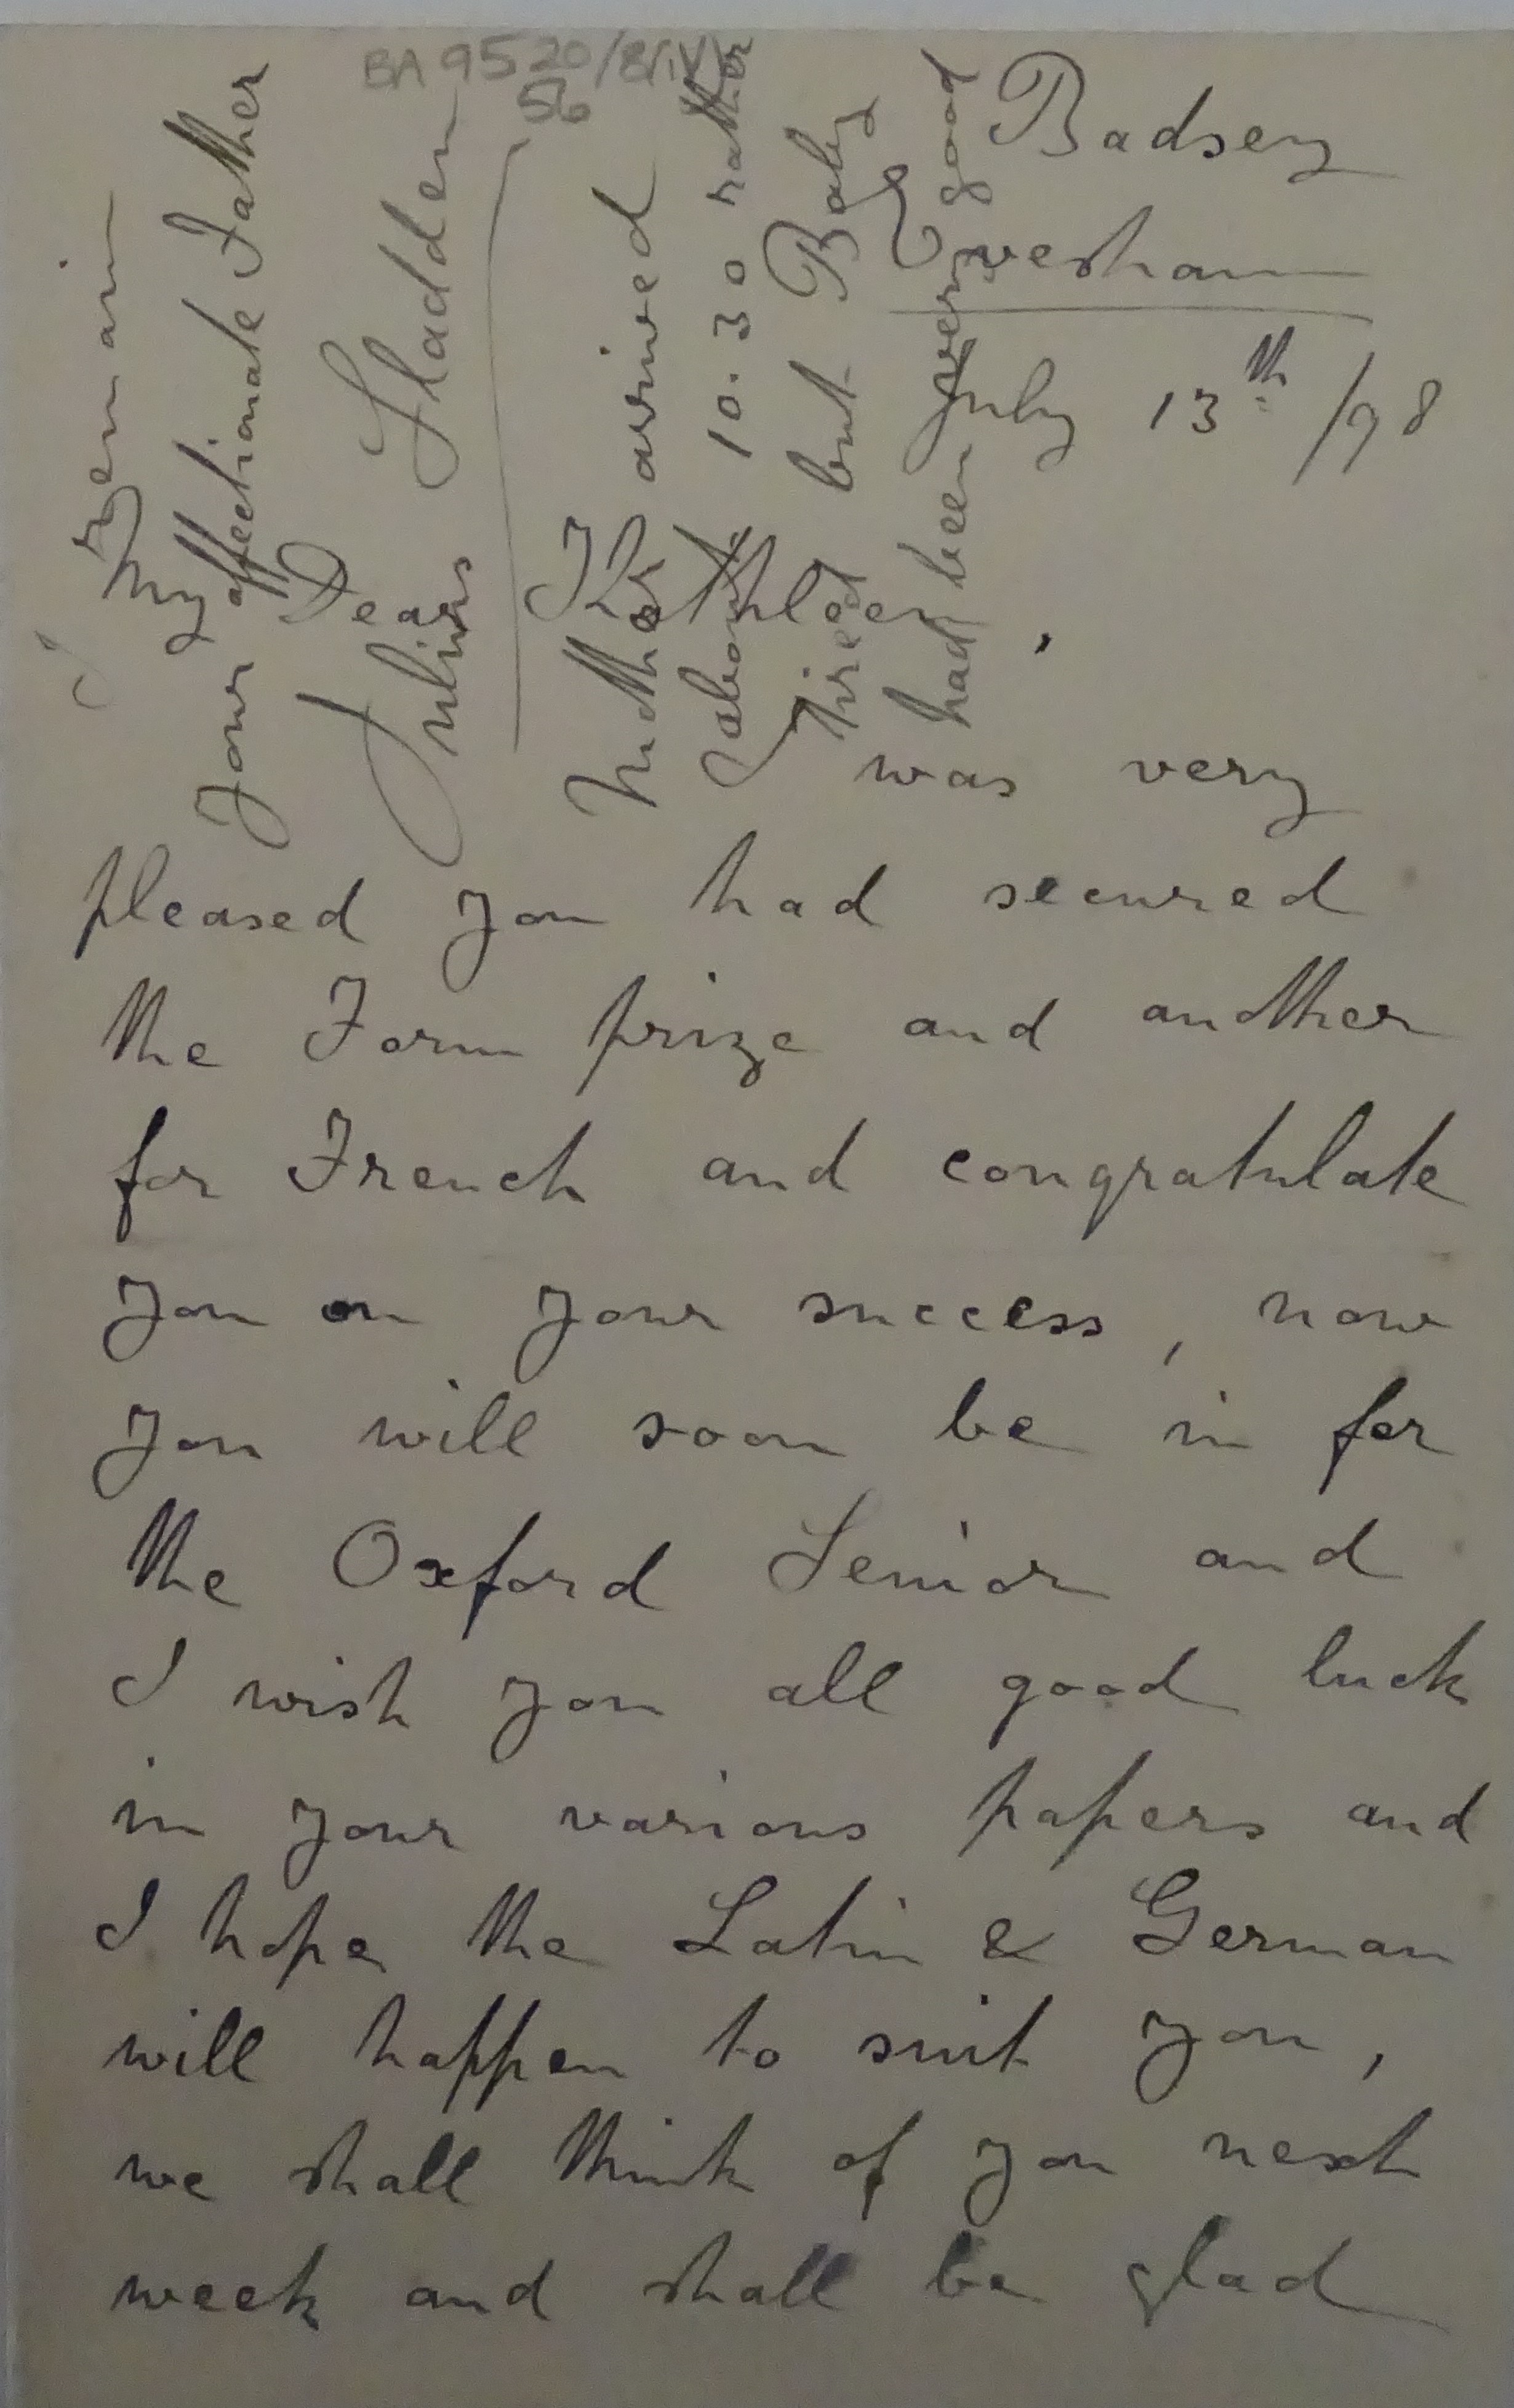 BA 9520/B/iv/
56
Badsey
Evesham
July 13th /98
My Dear Kathleen,
I was very
pleased you had secured
the Form prize and another
for French and congratulate
you on your success, now
you will soon be in for
the Oxford Senior and
I wish you all good luck
in your various papers and
I hope the Latin & German
will happen to suit you,
we shall think of you next
week and shall be glad
I remain
Your affectionate Father
Julius Sladden
Mother arrived
about 10.30 rather
tired but Baby
had been very good